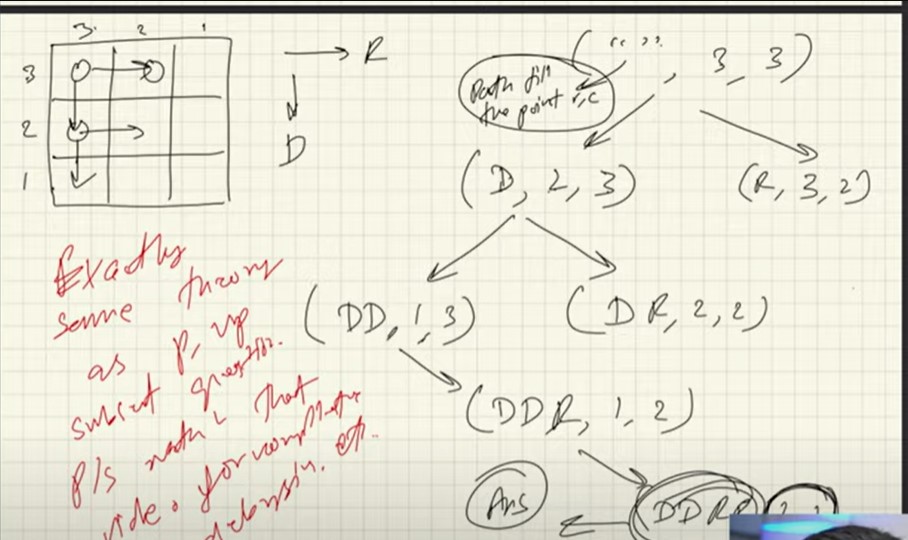 3 2 1
3
2
1
R
D
(" ", 3, 3)
Path till
the point r,c
(D, 2, 3)
(R, 3, 2)
(DD, 1, 3)
(DR, 2, 2)
(DDR, 1, 2)
Ans
DDRR
Exactly
same theory
as p, up
subset question.
P/s watch that
video for complete